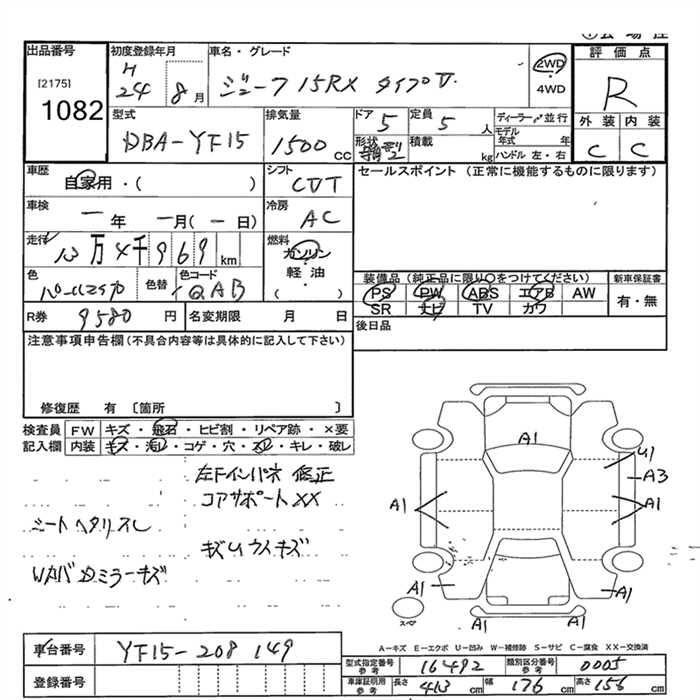 出品番号
[2175]
1082
初度登録年月
H
24 8月
車名・グレード
ジューク 15RX タイプV
2WD
4WD
評価点
R
外装 内装
C C
型式
DBA-YF15
排気量
1500 cc
ドア 5
形状
定員 5 人
積載 kg
ディーラー・並行
モデル年式 年
ハンドル 左・右
車歴
自家用・( )
シフト
CVT
セールスポイント (正常に機能するものに限ります)
車検
一年 一月(一日)
冷房
AC
走行
万4千969km
燃料
ガソリン
軽油
( )
色
パールマイカ
色替
色コード
QAB
装備品 (純正品に限り○をつけてください)
PS PW ABS エアB AW
SR ナビ TV カワ
新車保証書
有・無
R券 9580 円
名変期限 月 日
後日品
注意事項申告欄(不具合内容等は具体的に記入して下さい)
修復歴 有 〔箇所 〕
検査員記入欄
FW キズ・飛石・ヒビ割・リペア跡・×要
内装 キズ・汚レ・コゲ・穴・スレ・キレ・破レ
左フインパネ 修正
コアサポートXX
シートヘタリスレ
キズUウスキズ
ミラーキズ
A1
U1
A3
A1
A1
A1
A1
A1
スペア
A-キズ E-エクボ U-凹み W-補修跡 S-サビ C-腐食 XX-交換済
車台番号 YF15-208149
登録番号
型式指定番号 参考 16492 類別区分番号 参考 0005
車庫証明用 参考 長さ 413 cm 幅 176 cm 高さ 156 cm